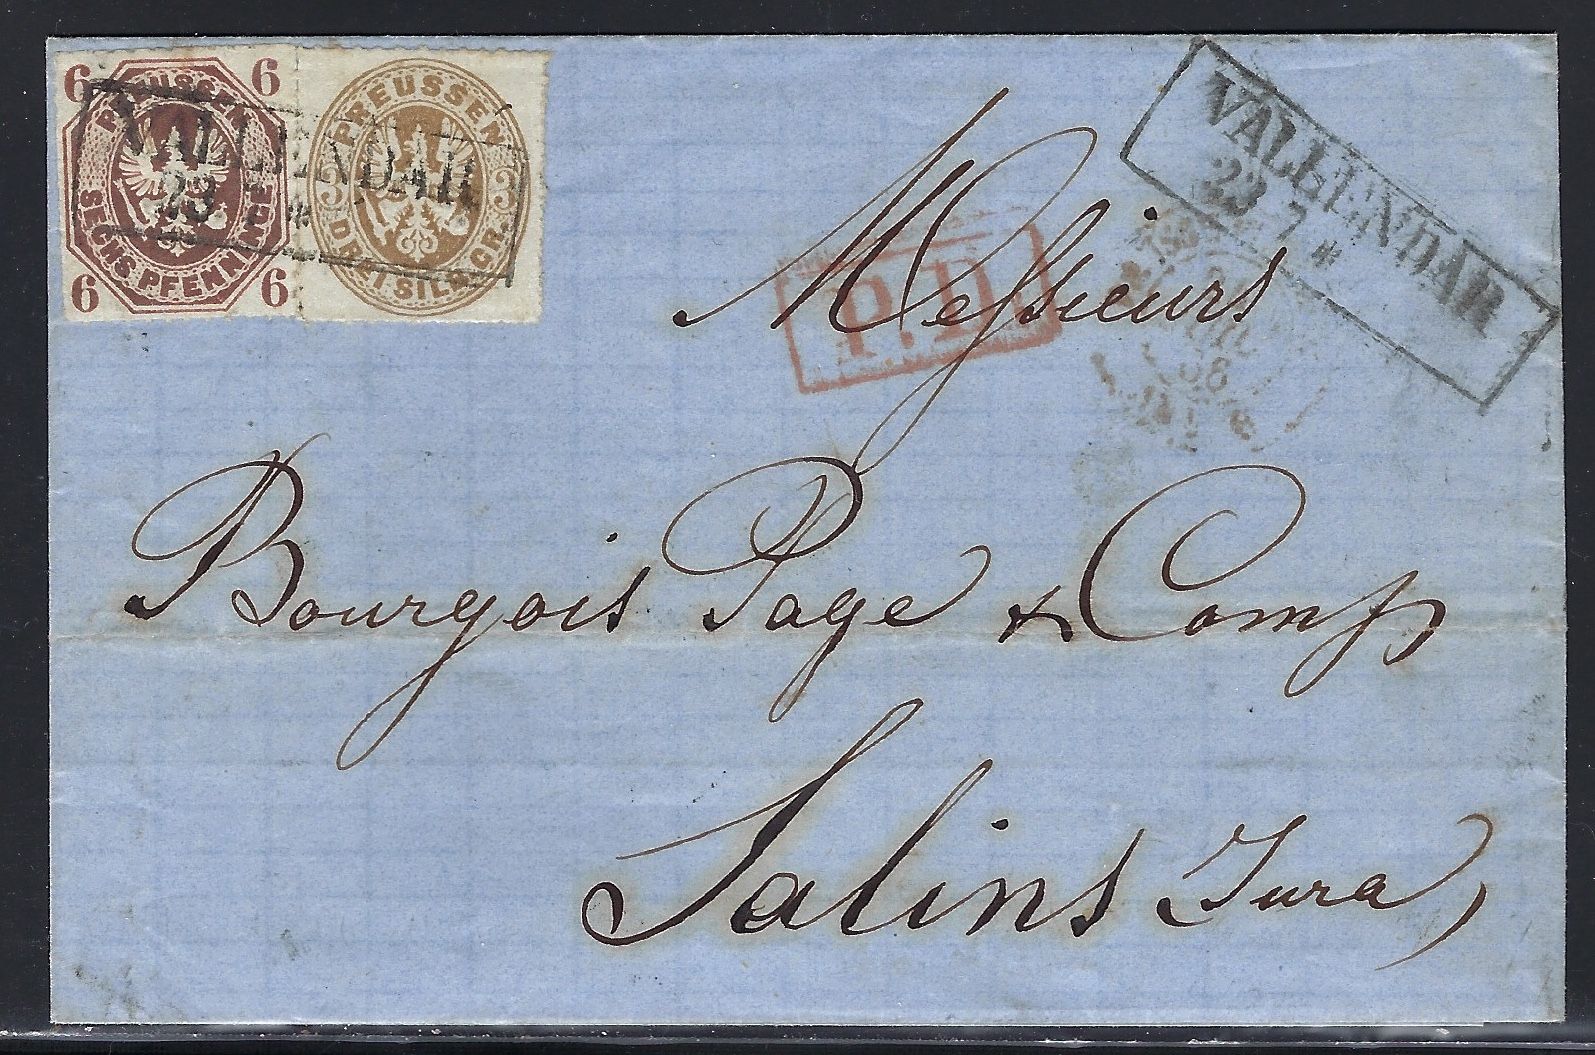 6 6
PREUSSEN
SECHS PFENNINGE
6 6
PREUSSEN
3 3
DREI SILB. GR.
VALLENDAR
23 7 *
VALLENDAR
23 7 *
P.D.
68
Messieurs
Bourgois Page & Comp
Salins Jura